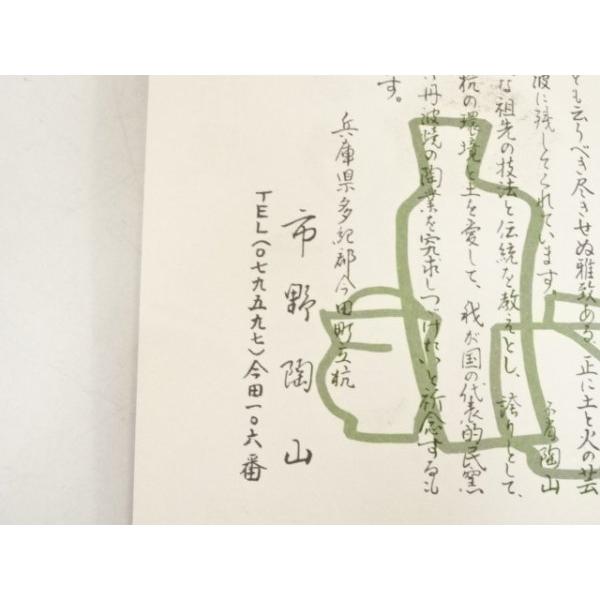 も云うべき尽きせぬ雅致ある、正に土と火の芸
波に残してくれています。
な祖先の技法と伝統を教えとし、誇りとして、
杭の環境と土を愛して、我が国の代表的民窯
丹波焼の陶業を究求しつづけたいと祈念するも
す。
陶山
兵庫県多紀郡今田町立杭
市野陶山
TEL(〇七九五九七)今田一〇六番